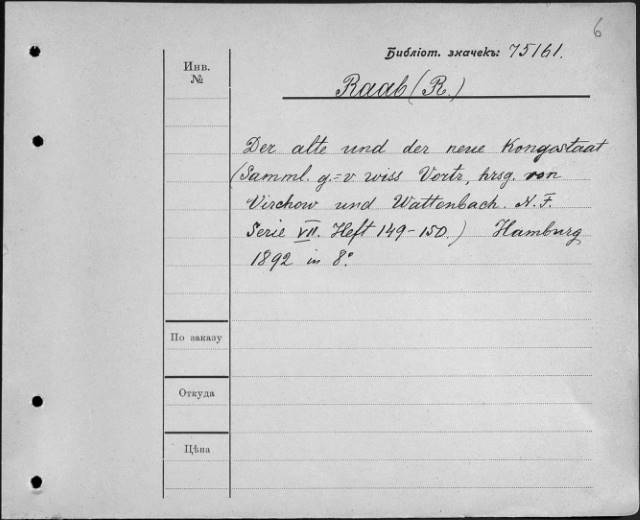 6
Библіот. значекъ: 75161.
Инв.
№
Raab (R.)
Der alte und der neue Kongostaat
(Samml. g.=v wiss Vortr, hrsg. von
Virchow und Wattenbach. N. F.
Serie VII. Heft 149-150.) Hamburg
1892 in 8°.
По заказу
Откуда
Цѣна